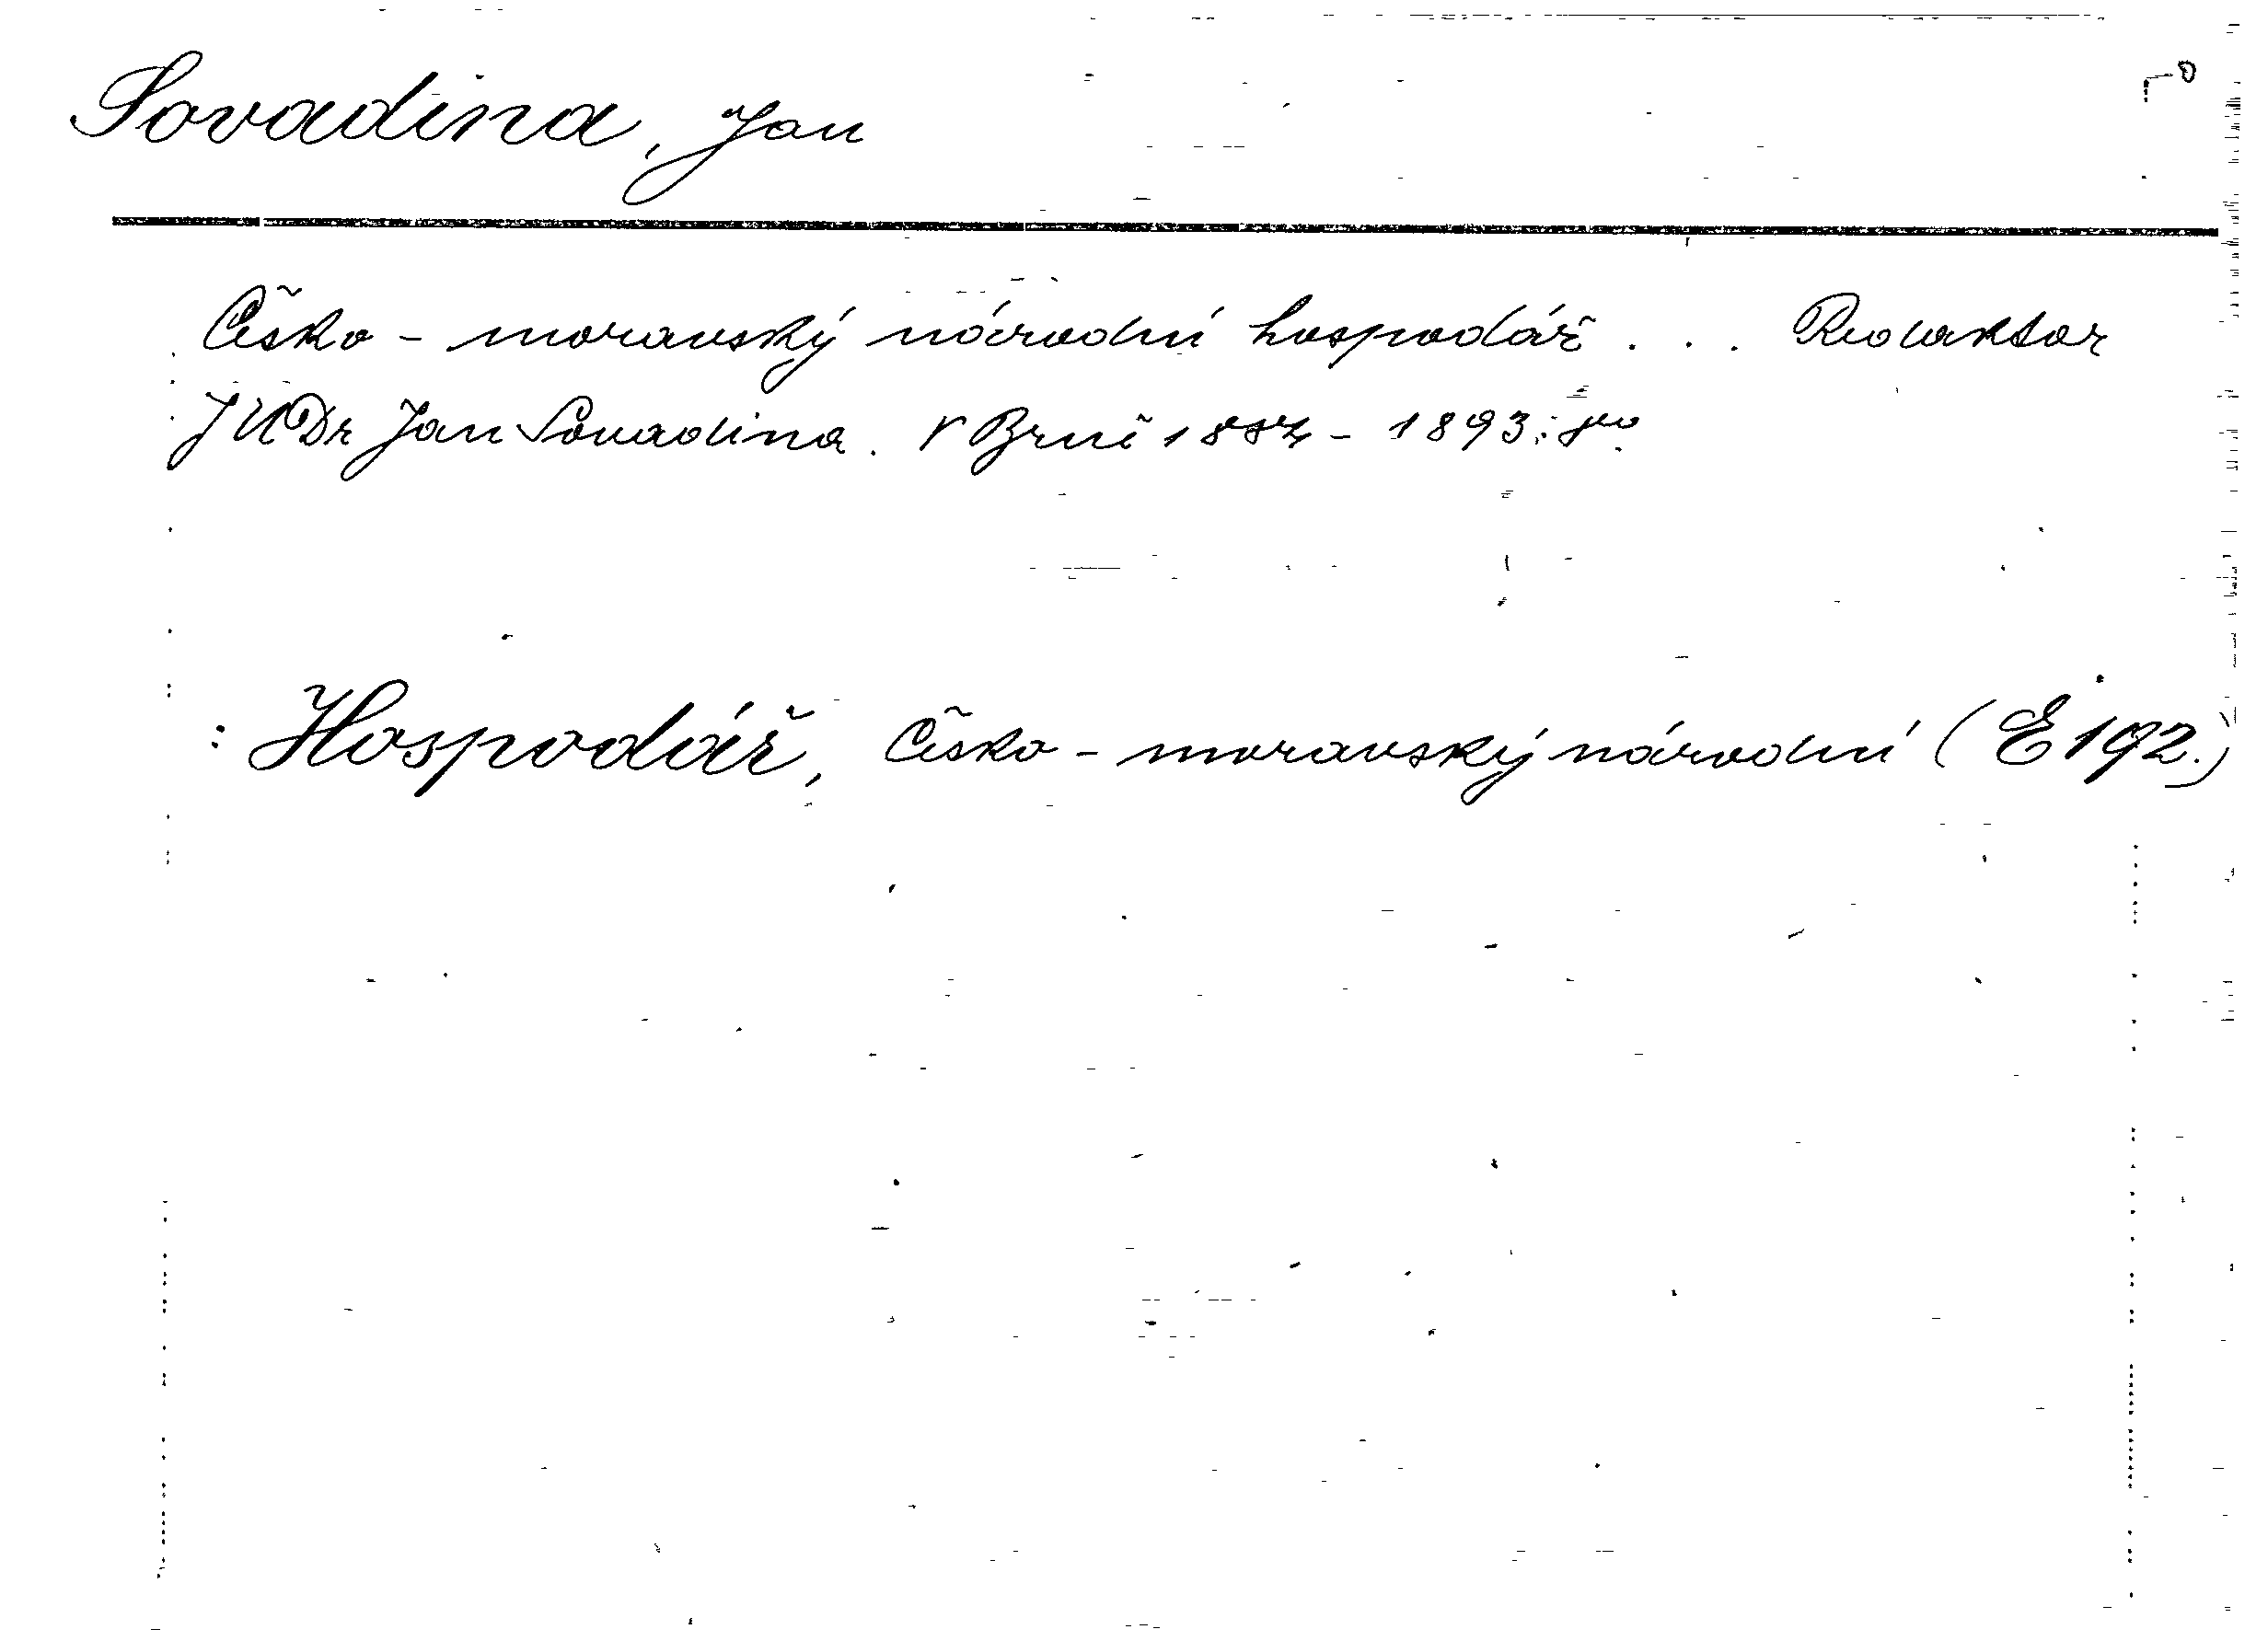 Sovadina, Jan
Česko - moravský národní hospodář . . . Redaktor
JUDr Jan Sovadina. V Brně 1887 - 1893.
: Hospodář, Česko - moravský národní (E 192.)